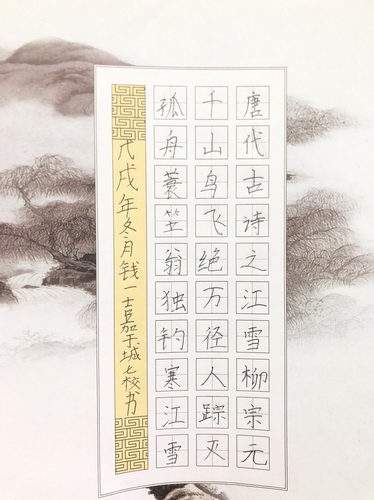 唐代古诗之江雪柳宗元
千山鸟飞绝万径人踪灭
孤舟蓑笠翁独钓寒江雪
戊戌年冬月钱一士嘉于城七校书